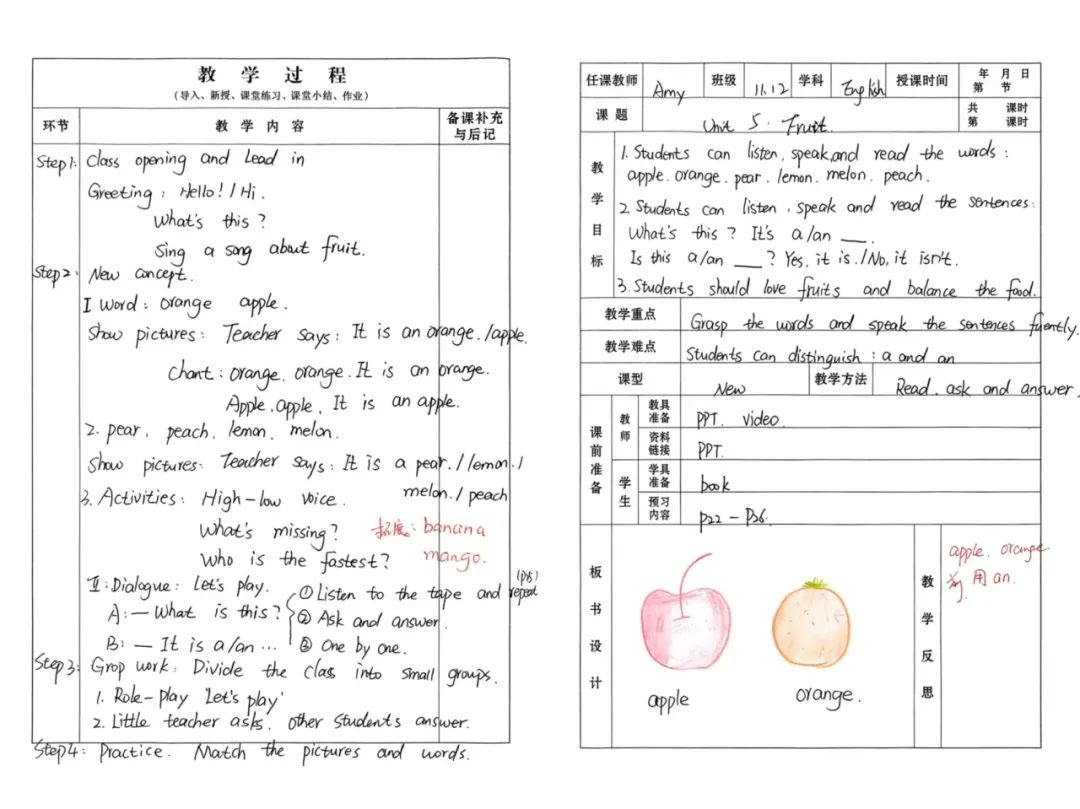 教 学 过 程
(导入、新授、课堂练习、课堂小结、作业)
环节 教 学 内 容 备课补充与后记
Step1: Class opening and Lead in
Greeting: Hello! / Hi.
What's this?
Sing a song about fruit.
Step2: New concept.
I word: orange apple.
Show pictures: Teacher says: It is an orange. /apple.
Chant: orange, orange. It is an orange.
Apple, apple, It is an apple.
2. pear, peach, lemon, melon.
Show pictures: Teacher says: It is a pear. / lemon. /
melon. / peach
3. Activities: High-low voice.
What's missing? 拓展: banana
Who is the fastest? mango.
II: Dialogue: Let's play. ① Listen to the tape and repeat
A: — What is this? ② Ask and answer.
B: — It is a/an ... ③ One by one.
Step3: Grop work: Divide the class into small groups.
1. Role-play 'Let's play'
2. Little teacher asks, other students answer.
Step4: Practice. Match the pictures and words.
任课教师 Amy 班级 11.12 学科 English 授课时间 年 月 日 第 节
课 题 Unit 5. Fruit. 共 课时 第 课时
教学目标
1. Students can listen, speak, and read the words:
apple. orange. pear. lemon. melon. peach.
2. Students can listen, speak and read the sentences:
What's this? It's a/an ___.
Is this a/an ___? Yes, it is. / No, it isn't.
3. Students should love fruits and balance the food.
教学重点 Grasp the words and speak the sentences fluently.
教学难点 Students can distinguish: a and an
课型 New 教学方法 Read, ask and answer.
课前准备
教师 教具准备 PPT. video.
资料链接 PPT.
学生 学具准备 book
预习内容 P22 - P26.
板书设计
apple
orange.
教学反思
apple. orange.
用 an.